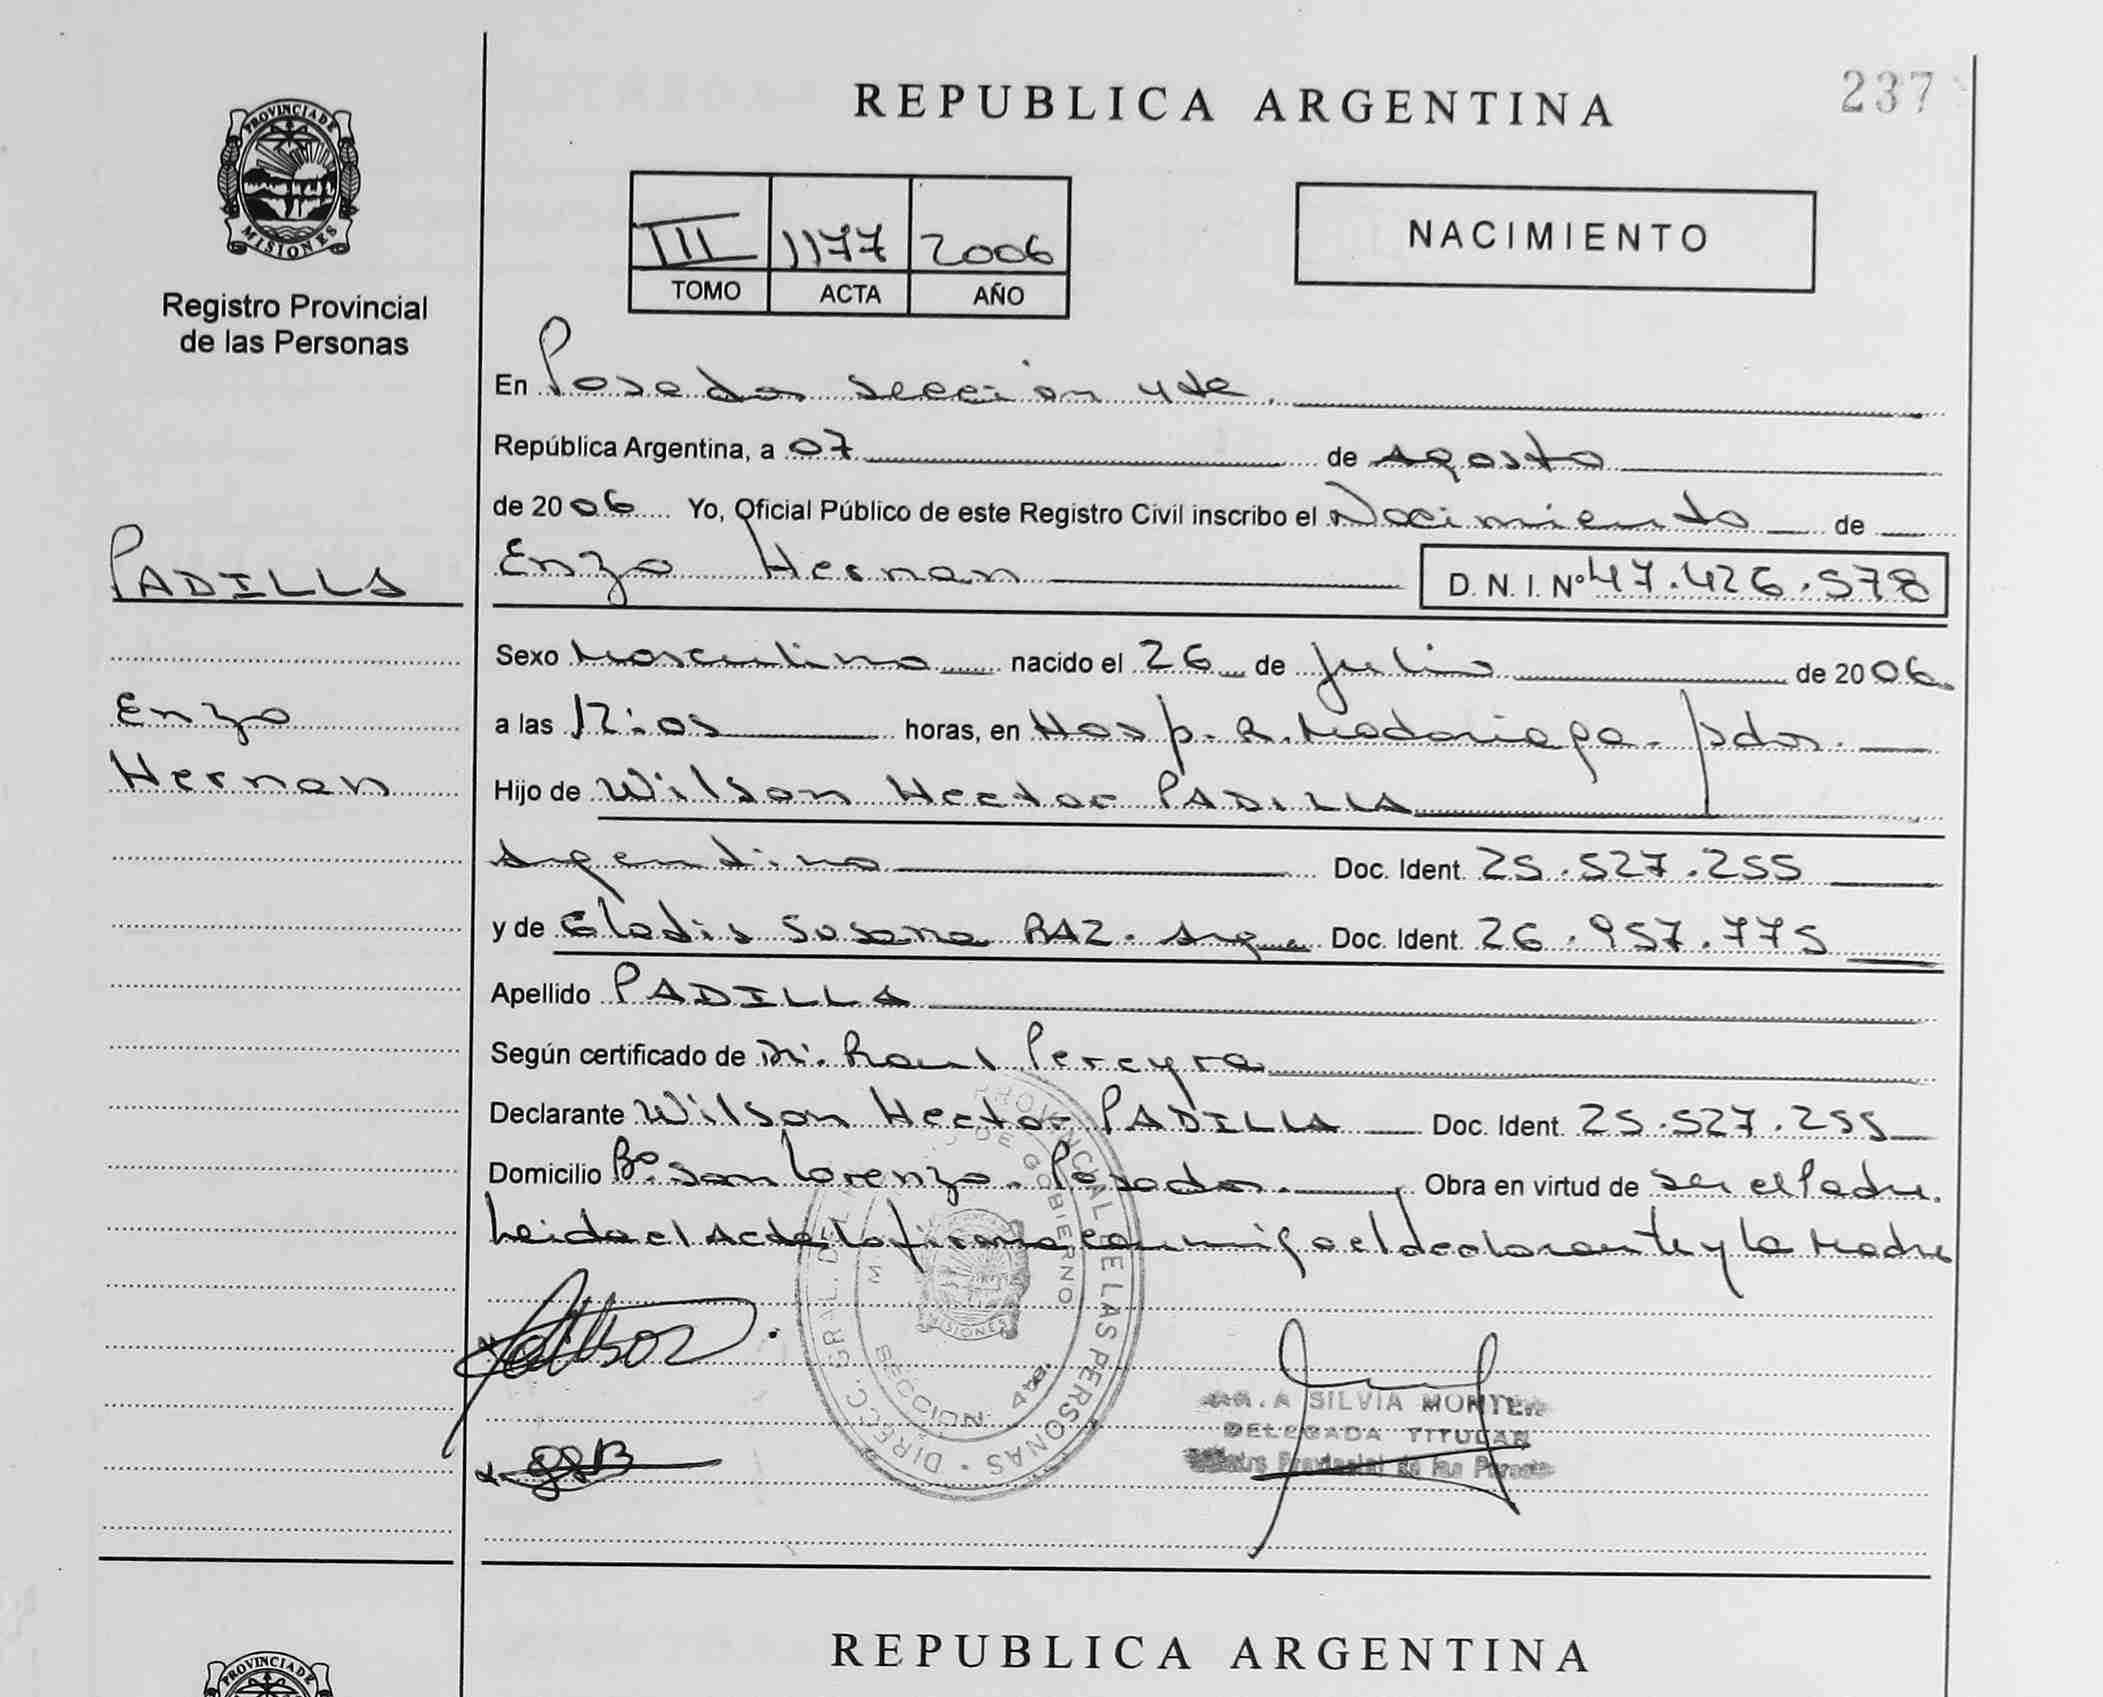 237
REPUBLICA ARGENTINA
PROVINCIA DE
MISIONES
Registro Provincial
de las Personas
III 1177 2006
TOMO ACTA AÑO
NACIMIENTO
En Posadas sección 4ta.
República Argentina, a 07 de Agosto
de 2006 Yo, Oficial Público de este Registro Civil inscribo el Nacimiento de
PADILLA
Enzo Hernan D. N. I. Nº 47.426.578
Sexo Masculino nacido el 26 de Julio de 2006.
Enzo
a las 12:05 horas, en Hosp. R. Madariaga. Pdas.
Hernan
Hijo de Wilson Hector PADILLA
Argentino Doc. Ident. 25.527.255
y de Gladis Susana PAZ. Arg Doc. Ident. 26.957.775
Apellido PADILLA
Según certificado de Dr. Raul Pereyra
Declarante Wilson Hector PADILLA Doc. Ident. 25.527.255
Domicilio Bº San Lorenzo. Posadas. Obra en virtud de ser el Padre.
Leida el Acta, la firma conmigo el declarante y la Madre
DIRECC. GRAL. DE LAS PERSONAS
DE GOBIERNO
MISIONES
SECCION 4ta.
SILVIA MONTE
DELEGADA TITULAR
Provincial de las
REPUBLICA ARGENTINA
PROVINCIA DE